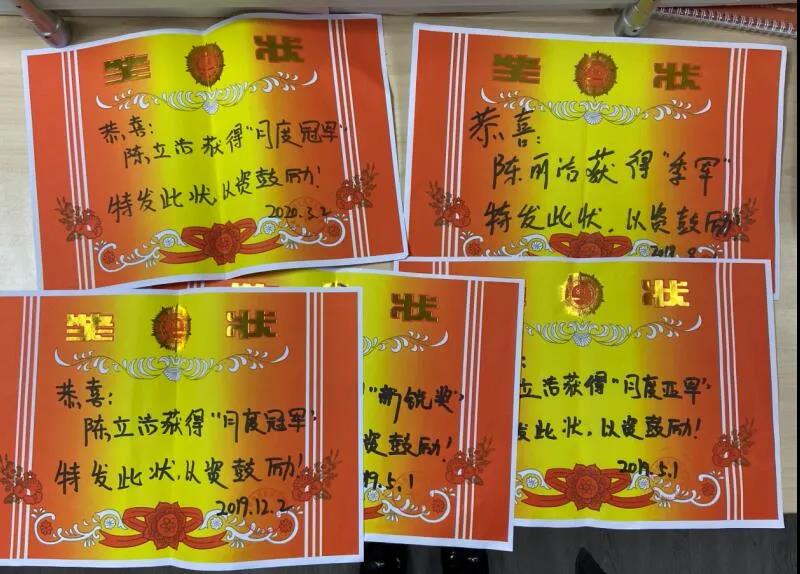 奖状
恭喜:
陈立洁获得"月度冠军"
特发此状,以资鼓励!
2020.3.2
奖状
恭喜:
陈丽洁获得"季军"
特发此状,以资鼓励!
奖状
恭喜:
陈立洁获得"月度冠军"
特发此状,以资鼓励!
2019.12.2
状
"新锐奖"
资鼓励!
19.5.1
奖状
:
立洁获得"月度亚军"
发此状,以资鼓励!
2019.5.1